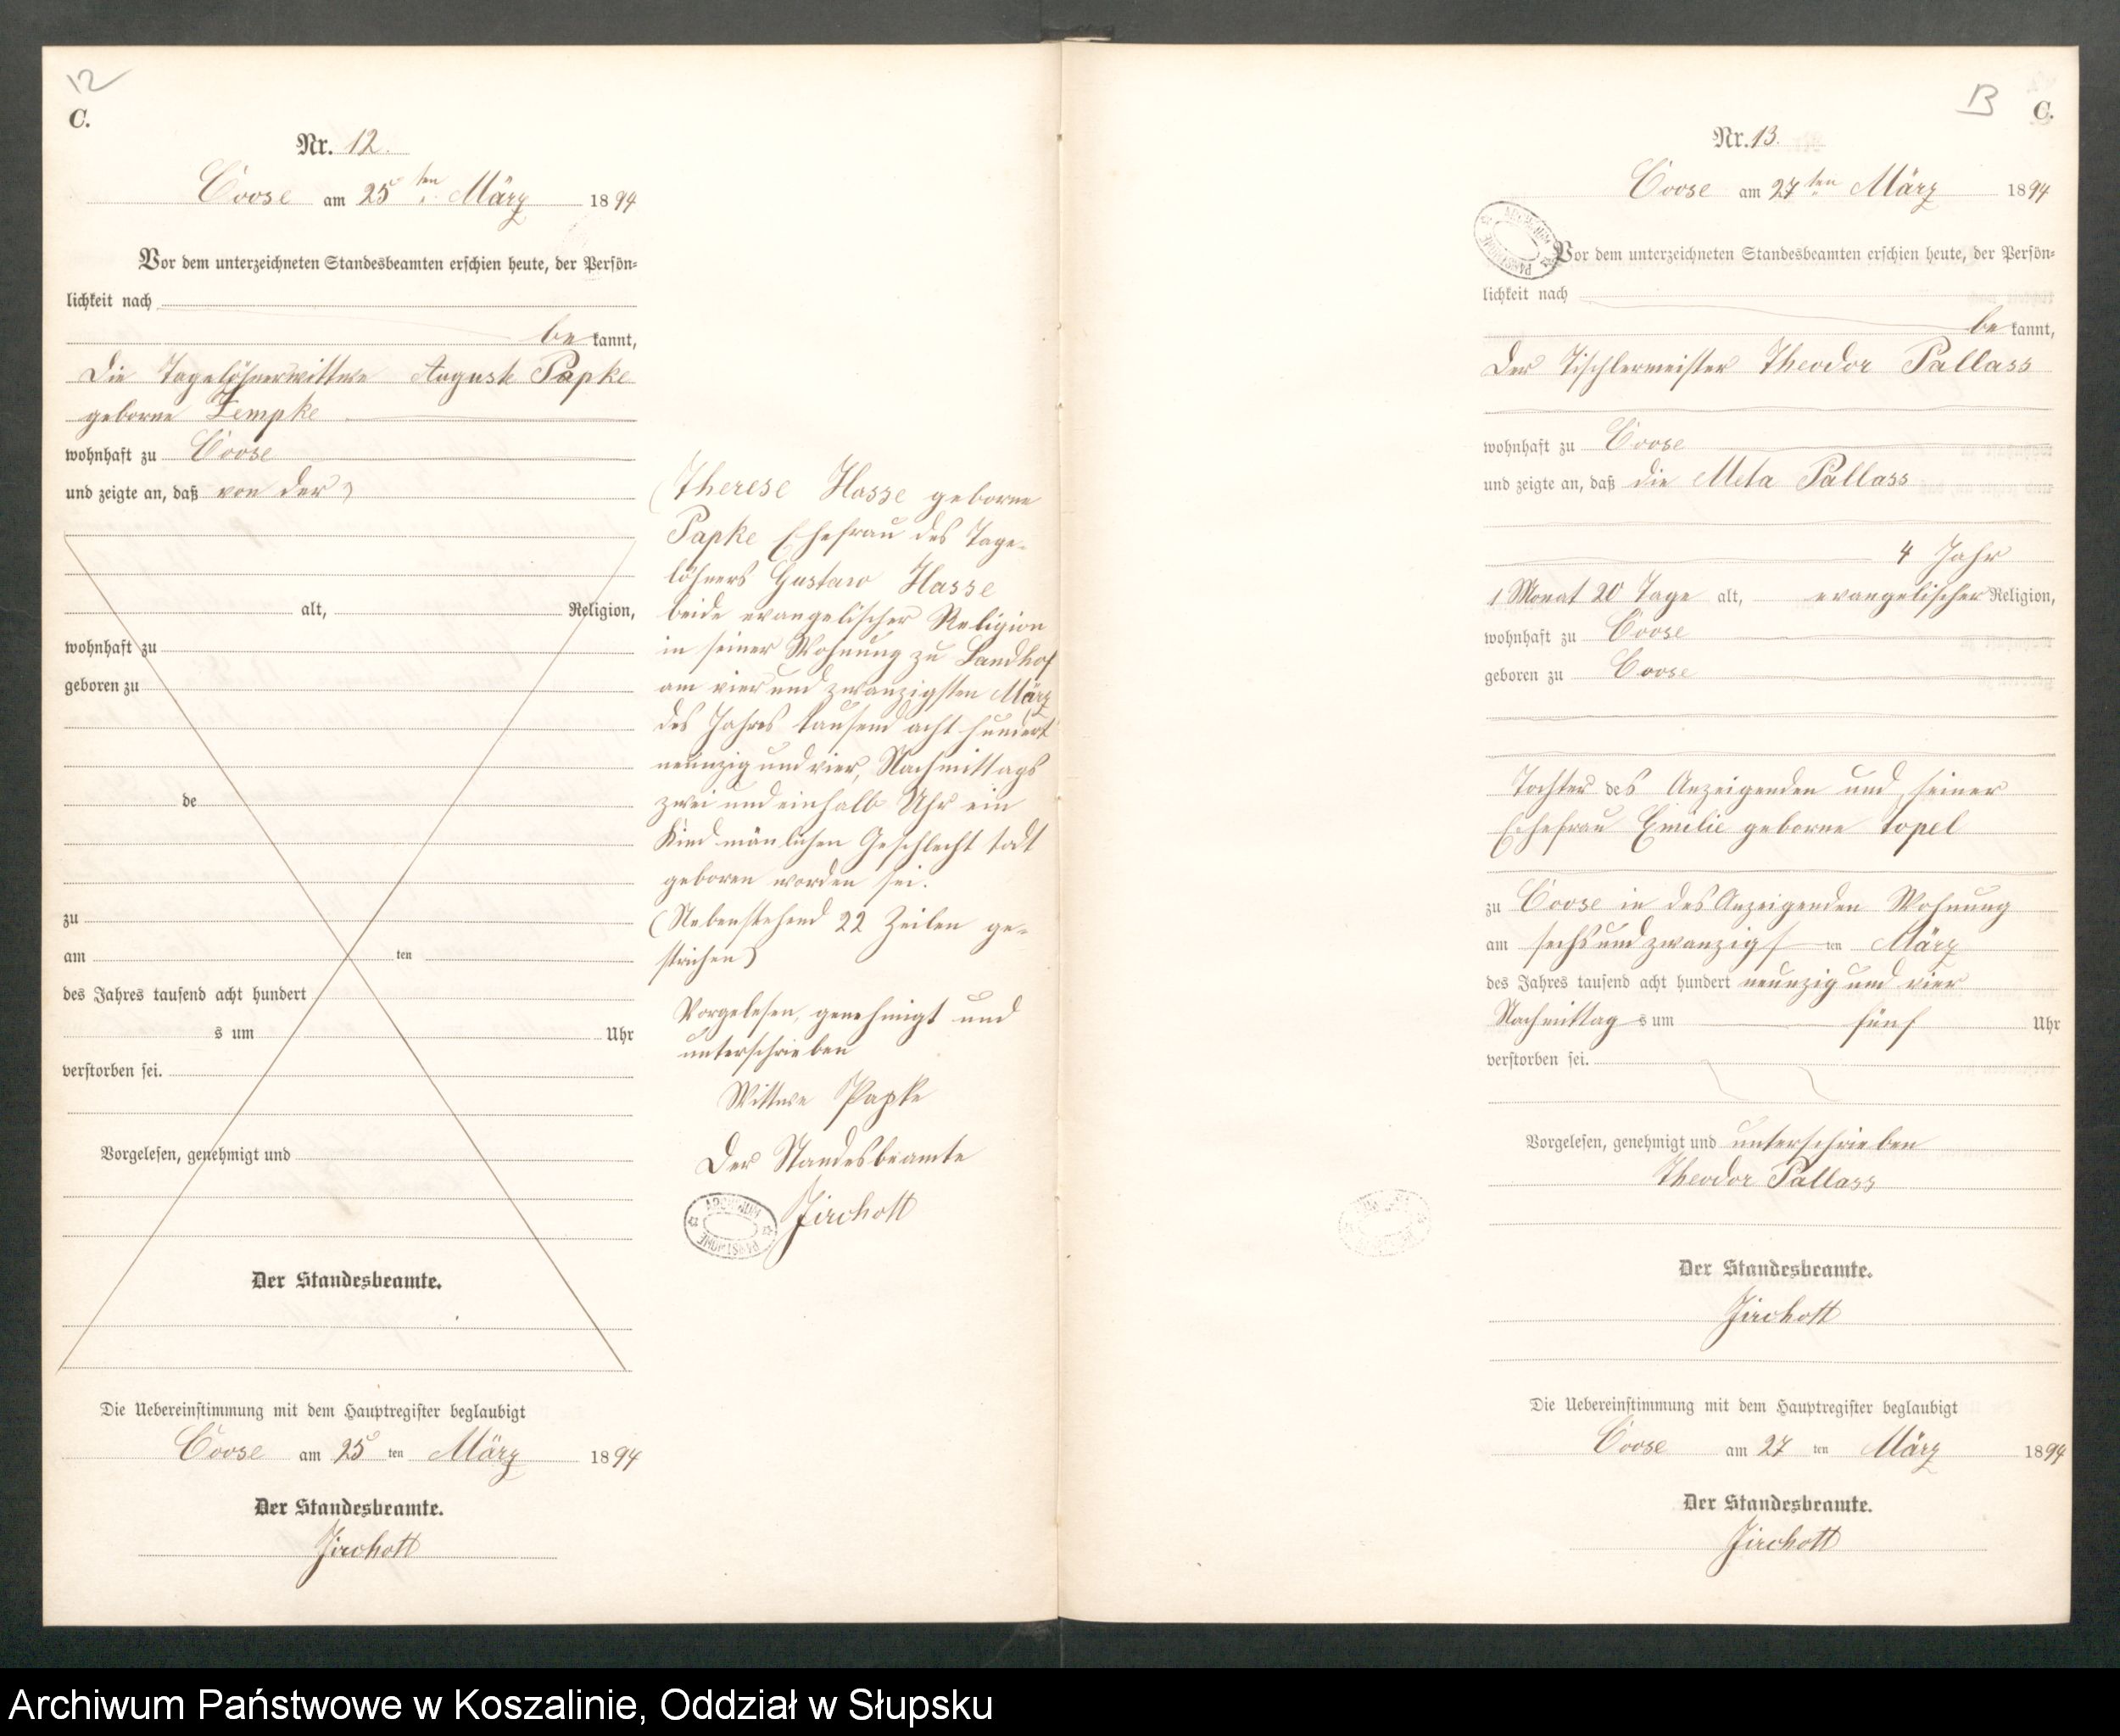 12
C.
Nr. 12.
Coose am 25ten März 1894
Vor dem unterzeichneten Standesbeamten erschien heute, der Persön=
lichkeit nach
be kannt,
die Tagelöhnerwittwe Auguste Papke
geborne Lempke
wohnhaft zu Coose
und zeigte an, daß von der
alt, Religion,
wohnhaft zu
geboren zu
de
zu
am ten
des Jahres tausend acht hundert
s um Uhr
verstorben sei.
Vorgelesen, genehmigt und
Der Standesbeamte.
Die Uebereinstimmung mit dem Hauptregister beglaubigt
Coose am 25 ten März 1894
Der Standesbeamte.
Jirchott
(Therese Hasse geborne
Papke Ehefrau des Tage-
löhners Gustaw Hasse
beide evangelischer Religion
in seiner Wohnung zu Landhof
am vier und zwanzigsten März
des Jahres tausend acht hundert
neunzig und vier, Nachmittags
zwei und einhalb Uhr ein
Kind mänlichen Geschlecht todt
geboren worden sei.
(Nebenstehend 22 Zeilen ge-
strichen)
Vorgelesen, genehmigt und
unterschrieben
Wittwe Papke
Der Standesbeamte
Jirchott
ARCHIWUM PAŃSTWOWE
13
C.
Nr. 13.
Coose am 27ten März 1894
ARCHIWUM PAŃSTWOWE
Vor dem unterzeichneten Standesbeamten erschien heute, der Persön=
lichkeit nach
be kannt,
der Tischlermeister Theodor Pallass
wohnhaft zu Coose
und zeigte an, daß die Meta Pallass
4 Jahr
1 Monat 20 Tage alt, evangelischer Religion,
wohnhaft zu Coose
geboren zu Coose
Tochter des Anzeigenden und seiner
Ehefrau Emilie geborne Topel
zu Coose in des Anzeigenden Wohnung
am sechs und zwanzigs ten März
des Jahres tausend acht hundert neunzig und vier
Nachmittag s um fünf Uhr
verstorben sei.
Vorgelesen, genehmigt und unterschrieben
Theodor Pallass
Der Standesbeamte.
Jirchott
Die Uebereinstimmung mit dem Hauptregister beglaubigt
Coose am 27 ten März 1894
Der Standesbeamte.
Jirchott
Archiwum Państwowe w Koszalinie, Oddział w Słupsku